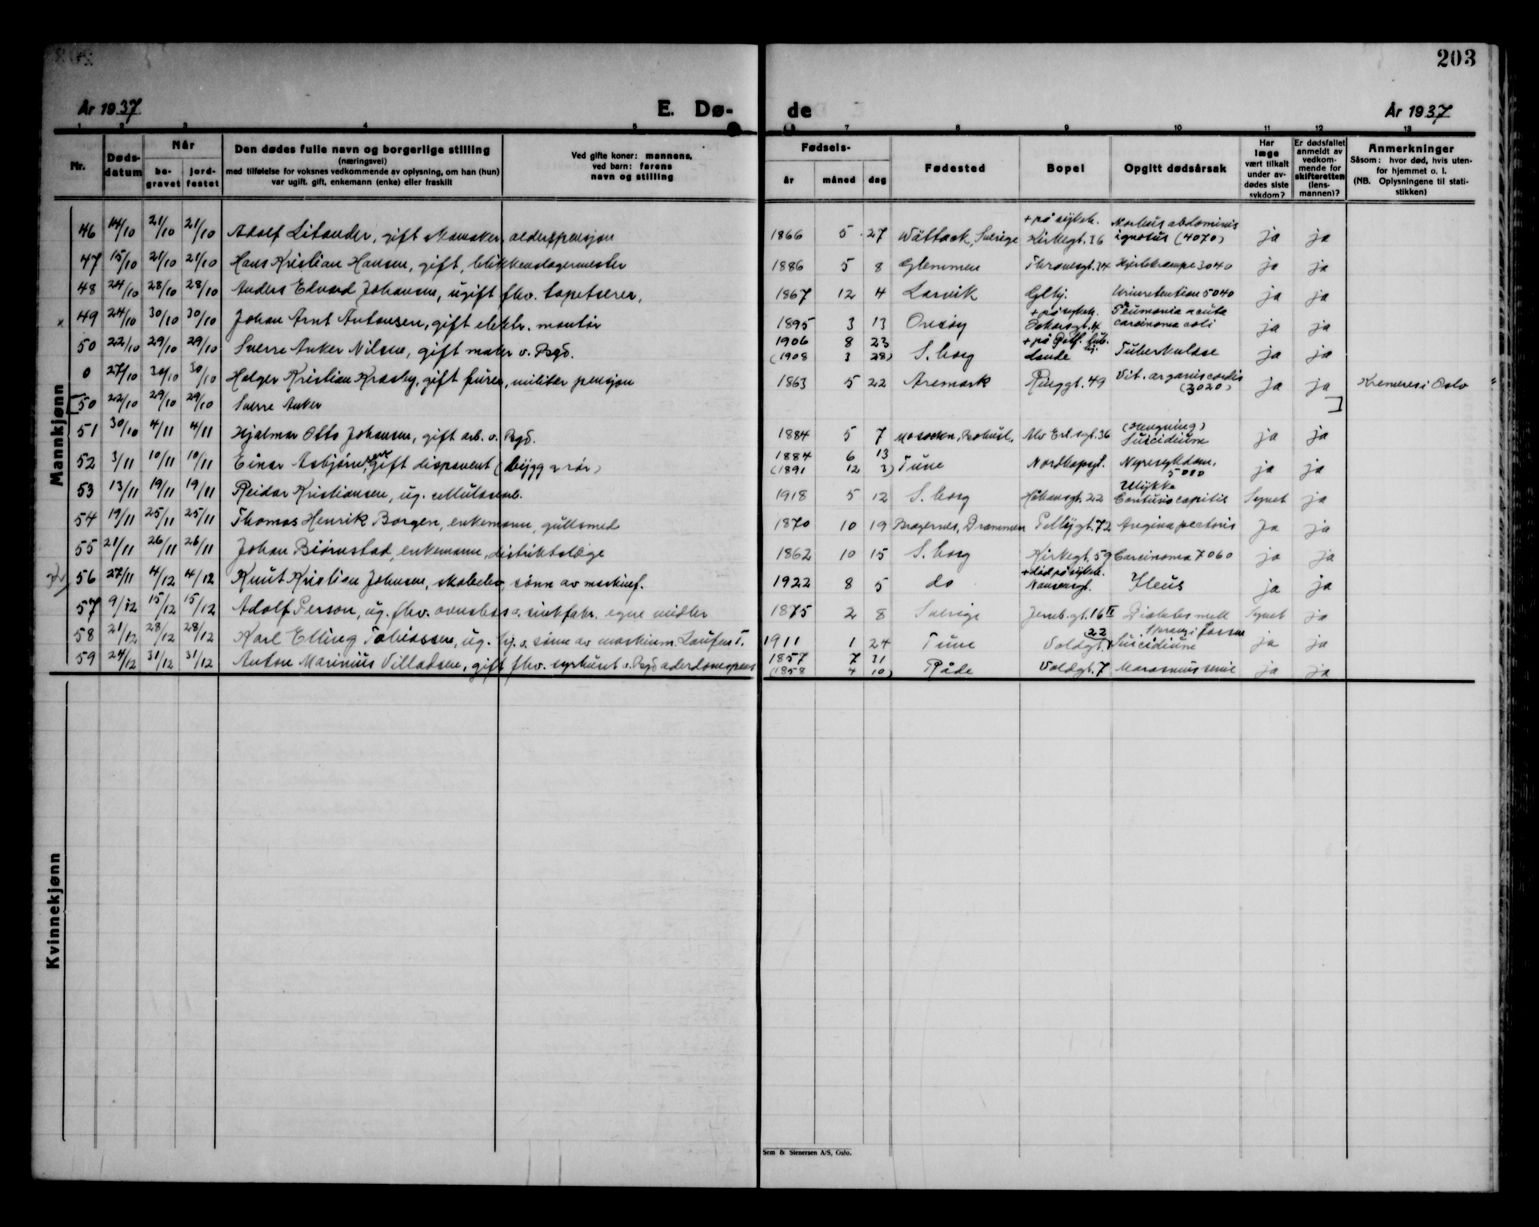 203
År 1937 E. Dø- de År 1937
1 2 3 4 5 6 7 8 9 10 11 12 13
Nr. Døds-datum Når be-gravet jord-festet
Den dødes fulle navn og borgerlige stilling
(næringsvei)
med tilføielse for voksnes vedkommende av oplysning, om han (hun)
var ugift, gift, enkemann (enke) eller fraskilt
Ved gifte koner: mannens,
ved barn: farens
navn og stilling
Fødsels-
år måned dag
Fødested Bopel Opgitt dødsårsak
Har læge vært tilkalt under av-dødes siste sykdom?
Er dødsfallet anmeldt av vedkom-mende for skifteretten (lens-mannen)?
Anmerkninger
Såsom: hvor død, hvis uten-
for hjemmet o. l.
(NB. Oplysningene til stati-
stikken)
Mannkjønn
46 14/10 21/10 21/10 Adolf Litander, gift, alderspensjon 1866 5 27 Sverige + på sykeh. Kirkegt. 36 Morbus abdominis ignotus (4070) ja ja
47 15/10 21/10 21/10 Hans Kristian Hansen, gift, blikkenslagermester 1886 5 8 Glemmen Thranesgt. 34 Hjertekrampe 3040 ja ja
48 24/10 28/10 28/10 Anders Edvard Johansen, ugift fhv. tapetserer, 1867 12 4 Larvik Glhj. Urinretention 5040 ja ja
x 49 24/10 30/10 30/10 Johan Arnt Antonsen, gift elektr. montør 1895 3 13 Onsøy + på sykeh. Oskarsgt. Pneumonia acuta carcinoma coli ja ja
50 22/10 29/10 29/10 Sverre Anker Nilsen, gift maler v. Bgd. 1906 8 23 (1908 3 28) S.borg Tuberkulose ja ja
0 27/10 30/10 30/10 Holger Kristian Krosby, gift furer, militær pensjon 1863 5 22 Aremark Ringgt. 49 Vit. organis cordis (3020) ja ja Kremeres i Oslo
[50 22/10 29/10 29/10 Sverre Anker ]
51 30/10 4/11 4/11 Hjalmar Otto Johansen, gift arb. v. Bgd. 1884 5 7 Bohusl. 36 (Hengning) Suicidium ja ja
52 3/11 10/11 10/11 Einar Asbjørnsen gift disponent (bygg & rør) 1884 6 13 (1891 12 3) Tune Nordkapgt. Nyresykdom, 5010 ja ja
53 13/11 19/11 19/11 Reidar Kristiansen, ug. cellulosearb. 1918 5 12 S.borg Håkonsgt. 22 Ulykke Contusio capitis Synet ja
54 19/11 25/11 25/11 Thomas Henrik Borgen, enkemann, gullsmed 1870 10 19 Bragernes, Drammen Pellygt. 72 Angina pectoris ja ja
55 21/11 26/11 26/11 Johan Biørnstad, enkemann, distriktslæge 1862 10 15 S.borg Kirkegt. 59 Carcinoma 7060 ja ja
56 27/11 4/12 4/12 Knut Kristian Johnsen, skoleelev, sønn av maskinf. 1922 8 5 do + død på sykeh. Nansensgt. Ileus ja ja
57 9/12 15/12 15/12 Adolf Person, ug. fhv. ovnsbas v. sinkfabr. egne midler 1875 2 8 Sverige Jernb.gt. 16 II Diabetes mell Synet ja
58 21/12 28/12 28/12 Karl Elling Tobiassen, ug. sønn av maskinm. Laufens T. 1911 1 24 Tune Voldgt. 22 Sprang i fossen Suicidium ja ja
59 24/12 31/12 31/12 Anton Marinius Villadsen, gift fhv. v. Bgd. alderdomspens 1857 7 31 (1858 4 10) Råde Voldgt. 7 Marasmus senil ja ja
Kvinnekjønn
Sem & Stenersen A/S, Oslo.